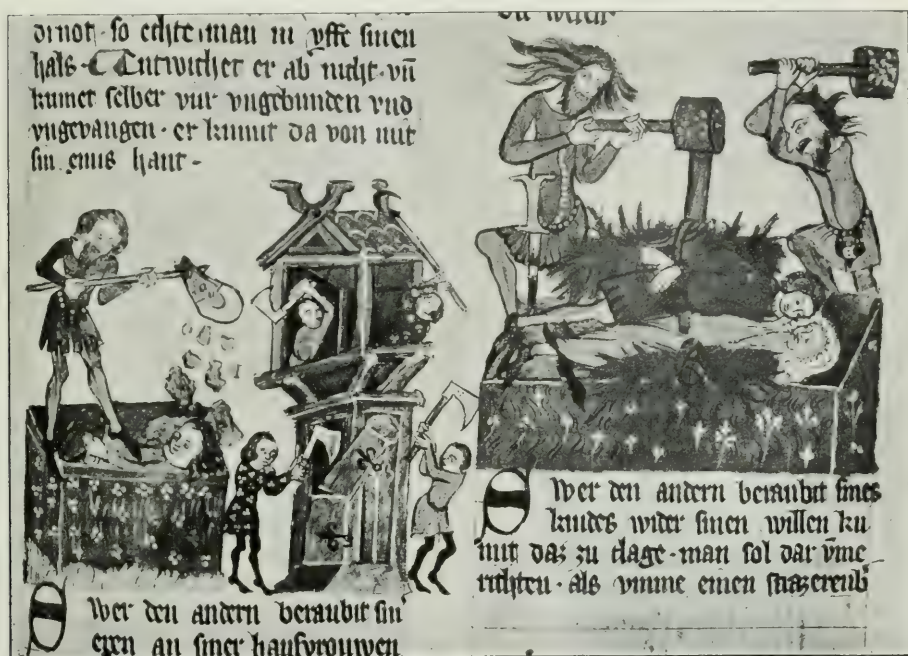 dinot · so echte man in vffe sinen
hals · Entwichet er ab nicht · vn̄
kumet selber vur vngebunden vnd
vngevangen · er kumit da von mit
sin eines hant -
Swer den andern beraubit sin
eren an siner hausvrouwen
Swer den andern beraubit sines
kindes wider sinen willen ku
mit daz zu clage · man sol dar vm̄e
richten · als vmme einen strazereub